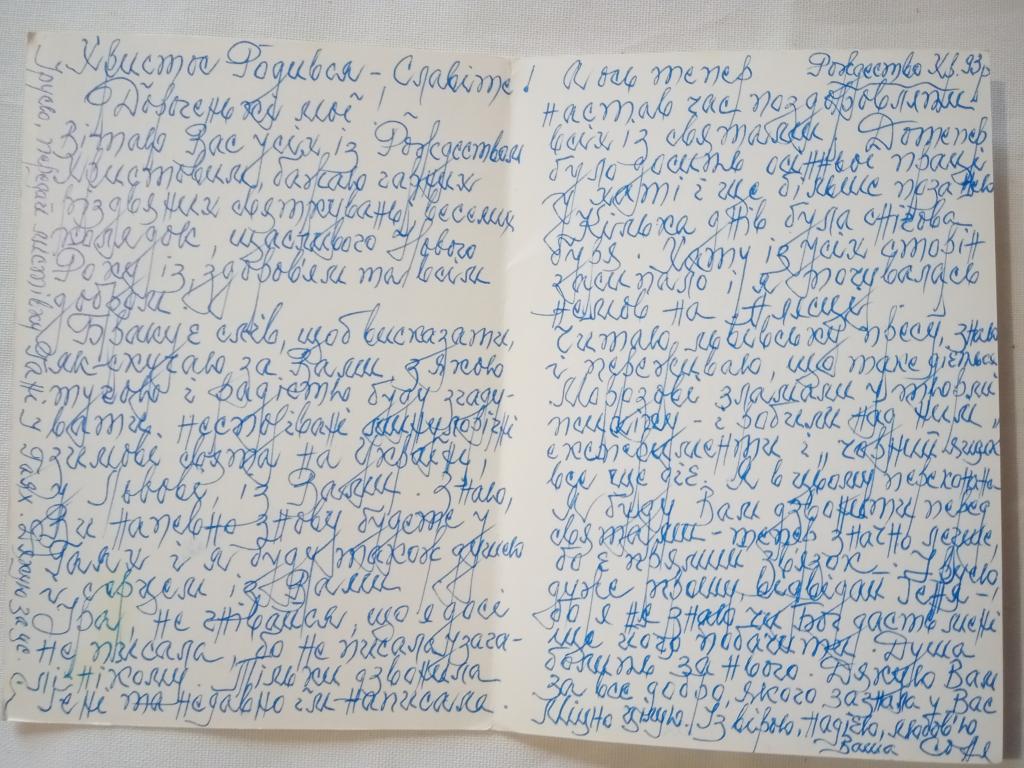 Христос Родився – Славіте!
Дороженькі мої!
Вітаю Вас усіх із Рождеством
Христовим, бажаю гарних
різдвяних святкувань, веселих
колядок, щасливого Нового
Року із здоровям та всім
добром.
Бракує слів, щоб висказати,
як скучаю за Вами. З якою
тугою і радістю буду згаду-
вати незабутні минулорічні
зимові свята на Україні,
у Львові, із Вами. Знаю,
Ви напевно знову будете у
Гаях і я буду також душею
й серцем із Вами.
не гнівайся, що я досі
не писала, бо не писала узага-
лі нікому. Тільки дзвонила
Гені та недавно їм написала.
Рождество Хр. 93р
А ось тепер
настав час поздоровляти
всіх із святами. Дотепер
було досить осінньої праці
у хаті і ще більше поза нею
Кілька днів була снігова
буря. Хату із усіх сторін
засипало і я почувалась
немов на Алясці.
Читаю львівську пресу, знаю
і переживаю, що таке діється
Морозові зламали у тюрмі
психіку – і робили над ним
експерименти і „чорний ящик
все ще діє. Я в цьому переконана
Я буду Вам дзвонити перед
святами – тепер значно легше,
бо є прямий звязок.
дуже прошу відвідай Геня –
бо я не знаю чи Бог дасть мені
ще його побачити. Душа
болить за нього. Дякую Вам
за все добро, якого зазнала у Вас
Міцно цілую. Із вірою, надією, любов'ю
Ваша Соня
передай листівку у Гаях. Дякую за це. С.